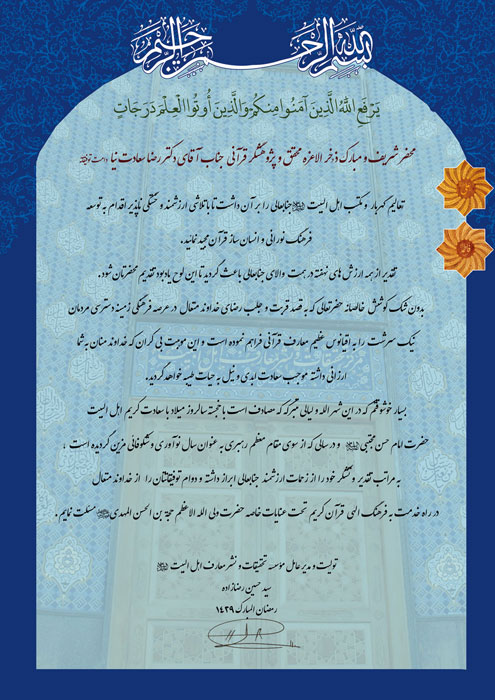 بسم الله الرحمن الرحیم
یَرْفَعِ اللهُ الَّذینَ آمَنُوا مِنکُمْ وَالَّذینَ أُوتُوا الْعِلْمَ دَرَجَاتٍ
محضر شریف و مبارک ذخر الاعزه محقق و پژوهشگر قرآنی جناب آقای دکتر رضا سعادت نیا
تعالیم گهربار مکتب اهل البیت جنابعالی را بر آن داشت تا با تلاشی ارزشمند و خستگی ناپذیر اقدام به توسعه
فرهنگ نورانی و انسان ساز قرآن مجید نمائید.
تقدیر از همه ارزش های نهفته در همت والای جنابعالی باعث گردید تا این لوح یادبود تقدیم محضرتان شود.
بدون شک کوشش خالصانه حضرتعالی که به قصد قربت و جلب رضای خداوند متعال در عرصه فرهنگی زمینه دسترسی مردمان
نیک سرشت را به اقیانوس عظیم معارف قرآنی فراهم نموده است و این موهبت بی کران که خداوند منان به شما
ارزانی داشته موجب سعادت ابدی و نیل به حیات طیبه خواهد گردید.
بسیار خوشوقتم که در این شهر الله و لیالی متبرکه که مصادف است با خجسته سالروز میلاد با سعادت کریم اهل البیت
حضرت امام حسن مجتبی و در سالی که از سوی مقام معظم رهبری به عنوان سال نوآوری و شکوفائی مزین گردیده است ،
به مراتب تقدیر و تشکر خود را از زحمات ارزشمند جنابعالی ابراز داشته و دوام توفیقاتتان را از خداوند متعال
در راه خدمت به فرهنگ الهی قرآن کریم تحت عنایات خاصه حضرت ولی الله الاعظم حجة بن الحسن المهدی مسئلت نمایم .
تولیت و مدیر عامل مؤسسه تحقیقات و نشر معارف اهل البیت
سید حسین رضازاده
رمضان المبارک ۱۴۲۹